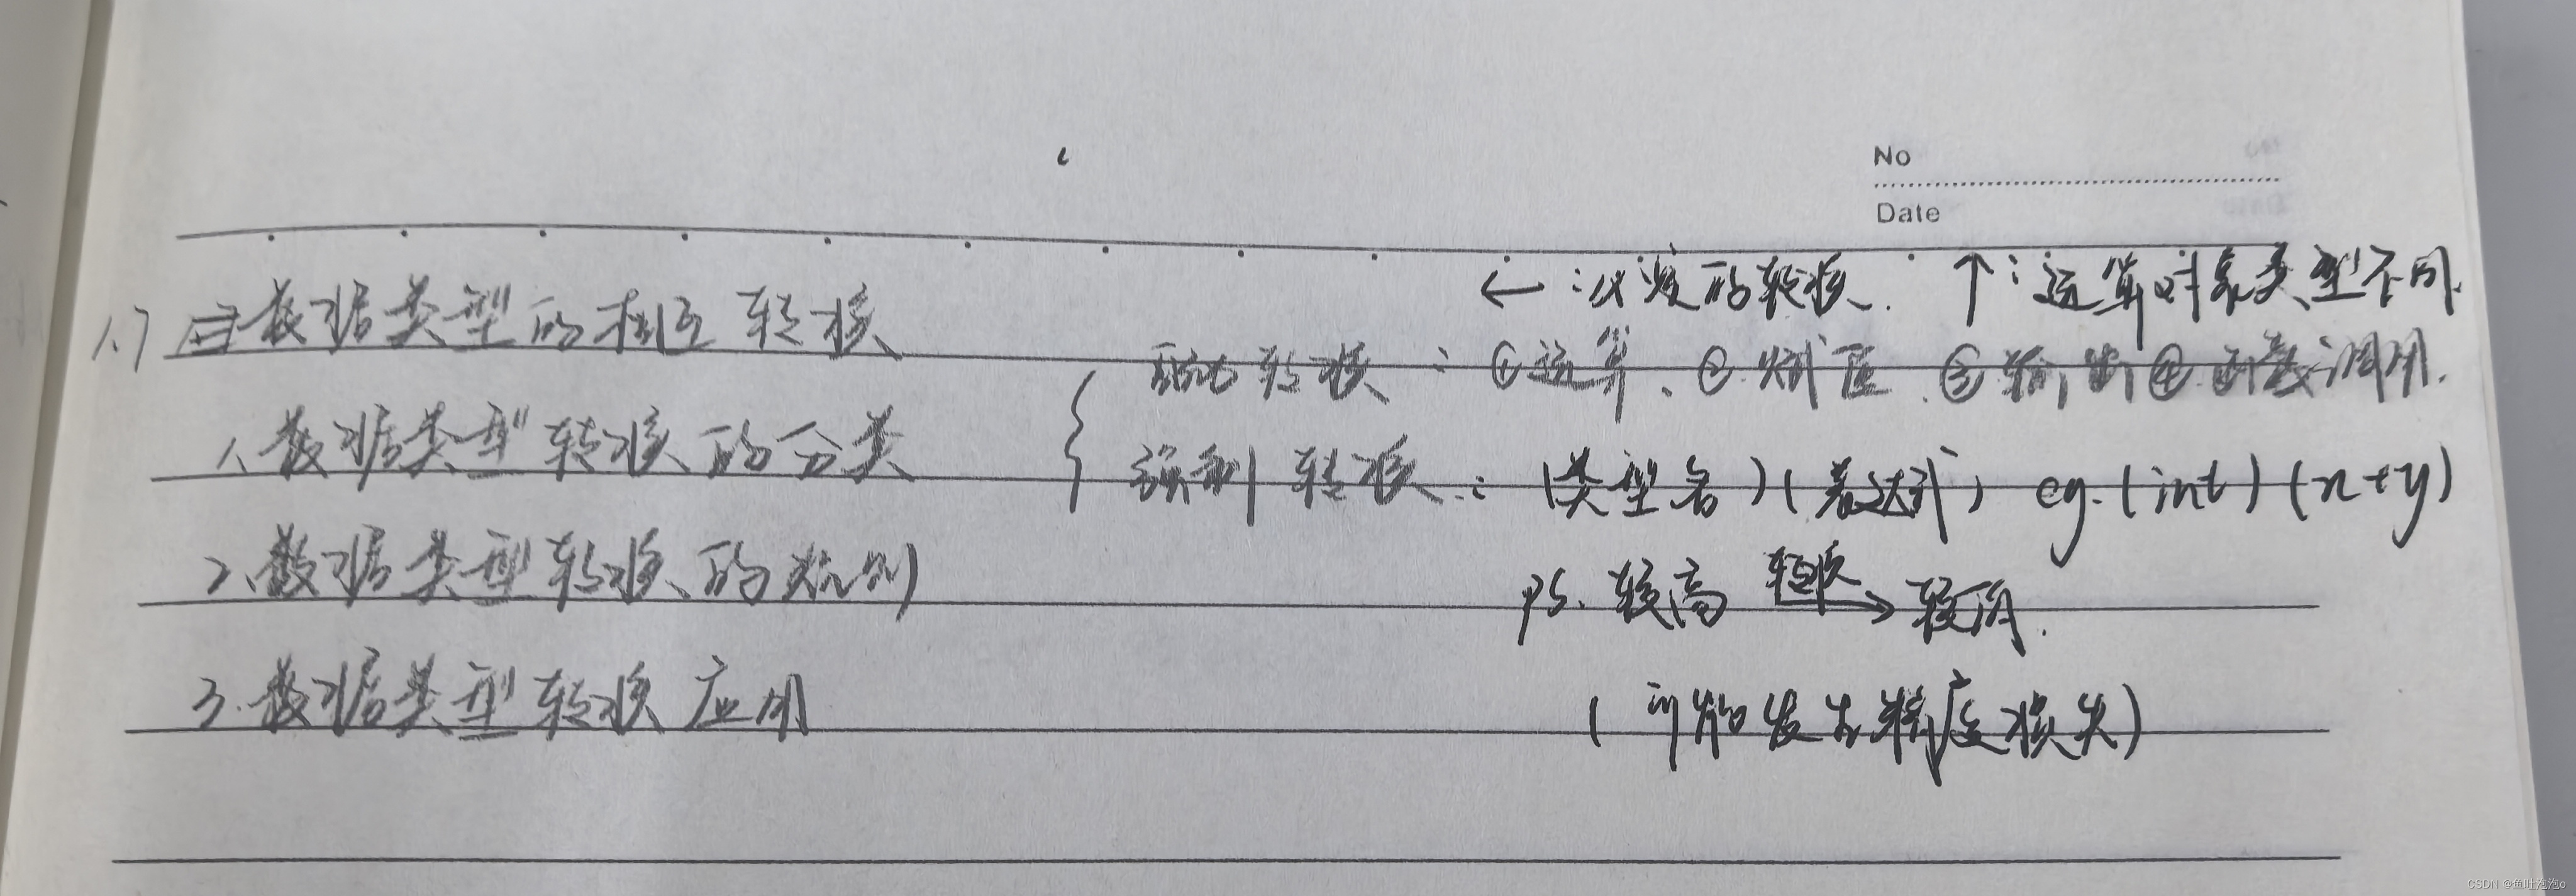 No
Date
←：必定的转换. ↑：运算对象类型不同.
1.7 数据类型的相互转换
自动转换：①运算、②赋值.③输出④函数调用.
1、数据类型转换的分类
强制转换：(类型名)(表达式) eg.(int)(x+y)
2、数据类型转换的规则
ps. 较高 转换→ 较低.
3.数据类型转换应用
(可能发生精度损失)
CSDN @鱼吐泡泡o